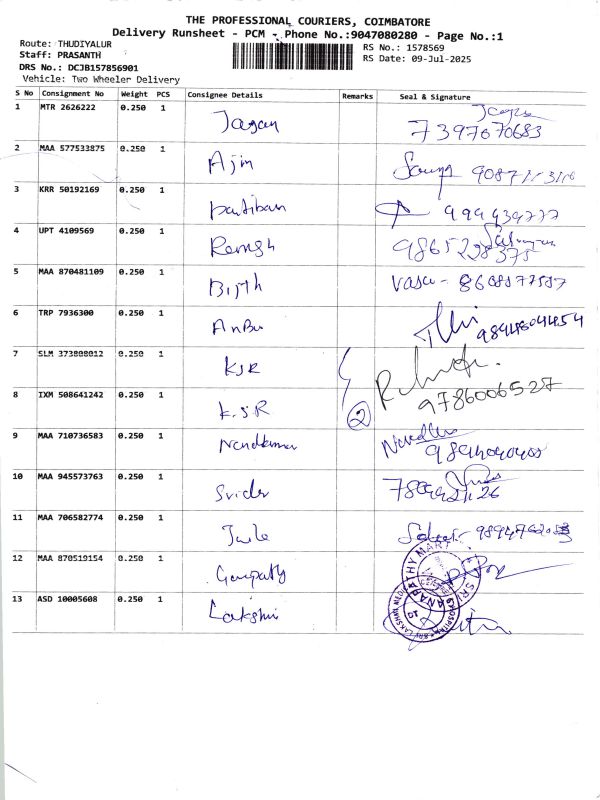 THE PROFESSIONAL COURIERS, COIMBATORE
Delivery Runsheet - PCM - Phone No.:9047080280 - Page No.:1
Route: THUDIYALUR
RS No.: 1578569
Staff: PRASANTH
RS Date: 09-Jul-2025
DRS No.: DCJB157856901
Vehicle: Two Wheeler Delivery
S No Consignment No Weight PCS Consignee Details Remarks Seal & Signature
1 MTR 2626222 0.250 1 Jagan 7397670683
2 MAA 577533875 0.250 1 Ajin
3 KRR 50192169 0.250 1 Partiban
4 UPT 4109569 0.250 1 Remsh
5 MAA 870481109 0.250 1 Bijth Vasu - 8608577587
6 TRP 7936300 0.250 1 Anbu 9894804454
7 SLM 373808012 0.250 1 KJR
8 IXM 508641242 0.250 1 K.JR 2 9786006527
9 MAA 710736583 0.250 1 Nandkumar
10 MAA 945573763 0.250 1 Srider
11 MAA 706582774 0.250 1
12 MAA 870519154 0.250 1 Ganpathy
13 ASD 10005608 0.250 1 Lakshmi